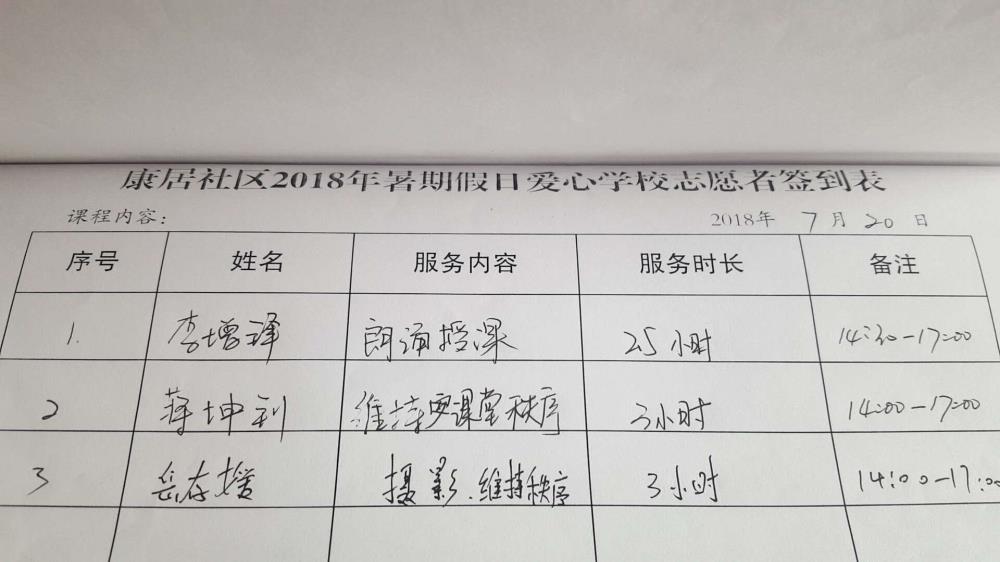 康居社区2018年暑期假日爱心学校志愿者签到表
课程内容： 2018年 7月20日
序号 姓名 服务内容 服务时长 备注
1. 李增译 朗诵授课 2.5小时 14:30-17:00
2 蒋坤利 维持课堂秩序 3小时 14:00-17:00
3 存媛 摄影.维持秩序 3小时 14:00-17:00